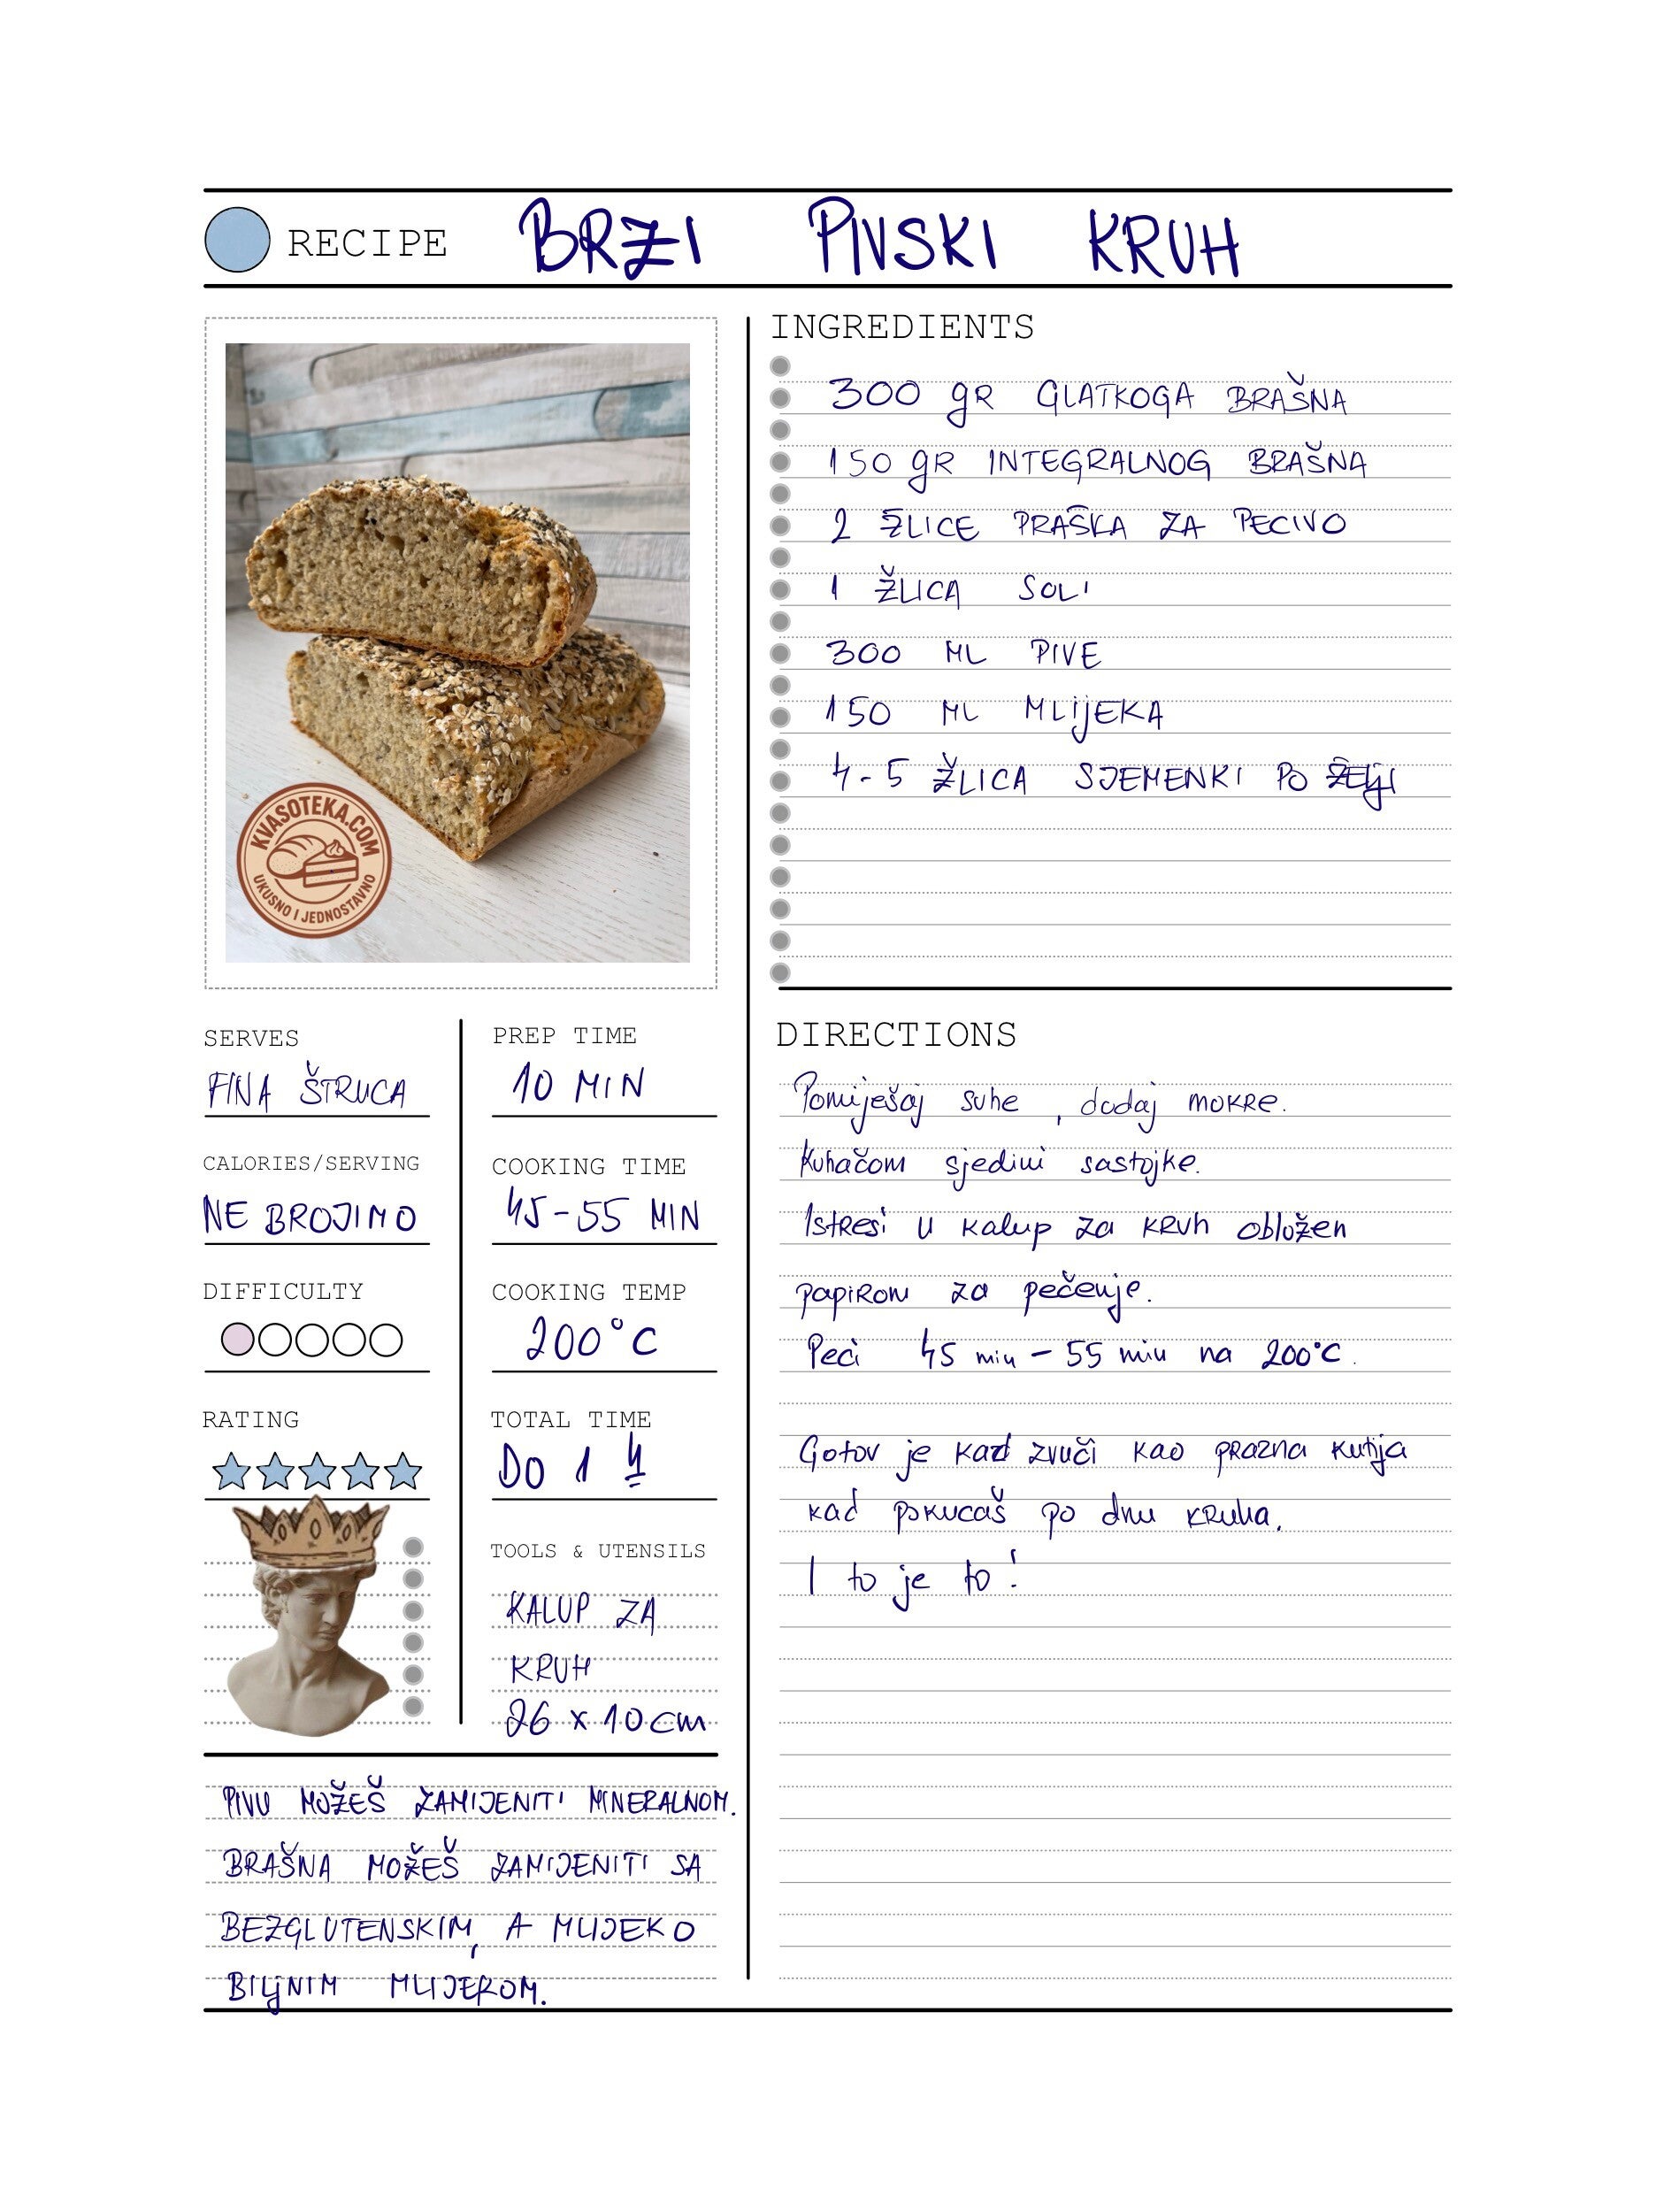 RECIPE BRZI PIVSKI KRUH
KVASOTEKA.COM
UKUSNO I JEDNOSTAVNO
SERVES
FINA ŠTRUCA
CALORIES/SERVING
NE BROJIMO
DIFFICULTY
RATING
PREP TIME
10 MIN
COOKING TIME
45-55 MIN
COOKING TEMP
200°C
TOTAL TIME
DO 1 H
TOOLS & UTENSILS
KALUP ZA
KRUH
26 x 10 cm
PIVU MOŽEŠ ZAMIJENITI MINERALNOM.
BRAŠNA MOŽEŠ ZAMIJENITI SA
BEZGLUTENSKIM, A MLIJEKO
BILjNIM MLIJEKOM.
INGREDIENTS
300 gR GLATKOGA BRAŠNA
150 gR INTEGRALNOG BRAŠNA
2 ŽLICE PRAŠKA ZA PECIVO
1 ŽLICA SOLI
300 ML PIVE
150 ML MLIjEKA
4-5 ŽLICA SJEMENKI PO ŽELjI
DIRECTIONS
Pomiješaj suhe, dodaj mokre.
Kuhačom sjedini sastojke.
Istresi u kalup za kruh obložen
papirom za pečenje.
Peci 45 min - 55 min na 200°C.
Gotov je kad zvuči kao prazna kutija
kad pokucaš po dnu kruha.
I to je to!